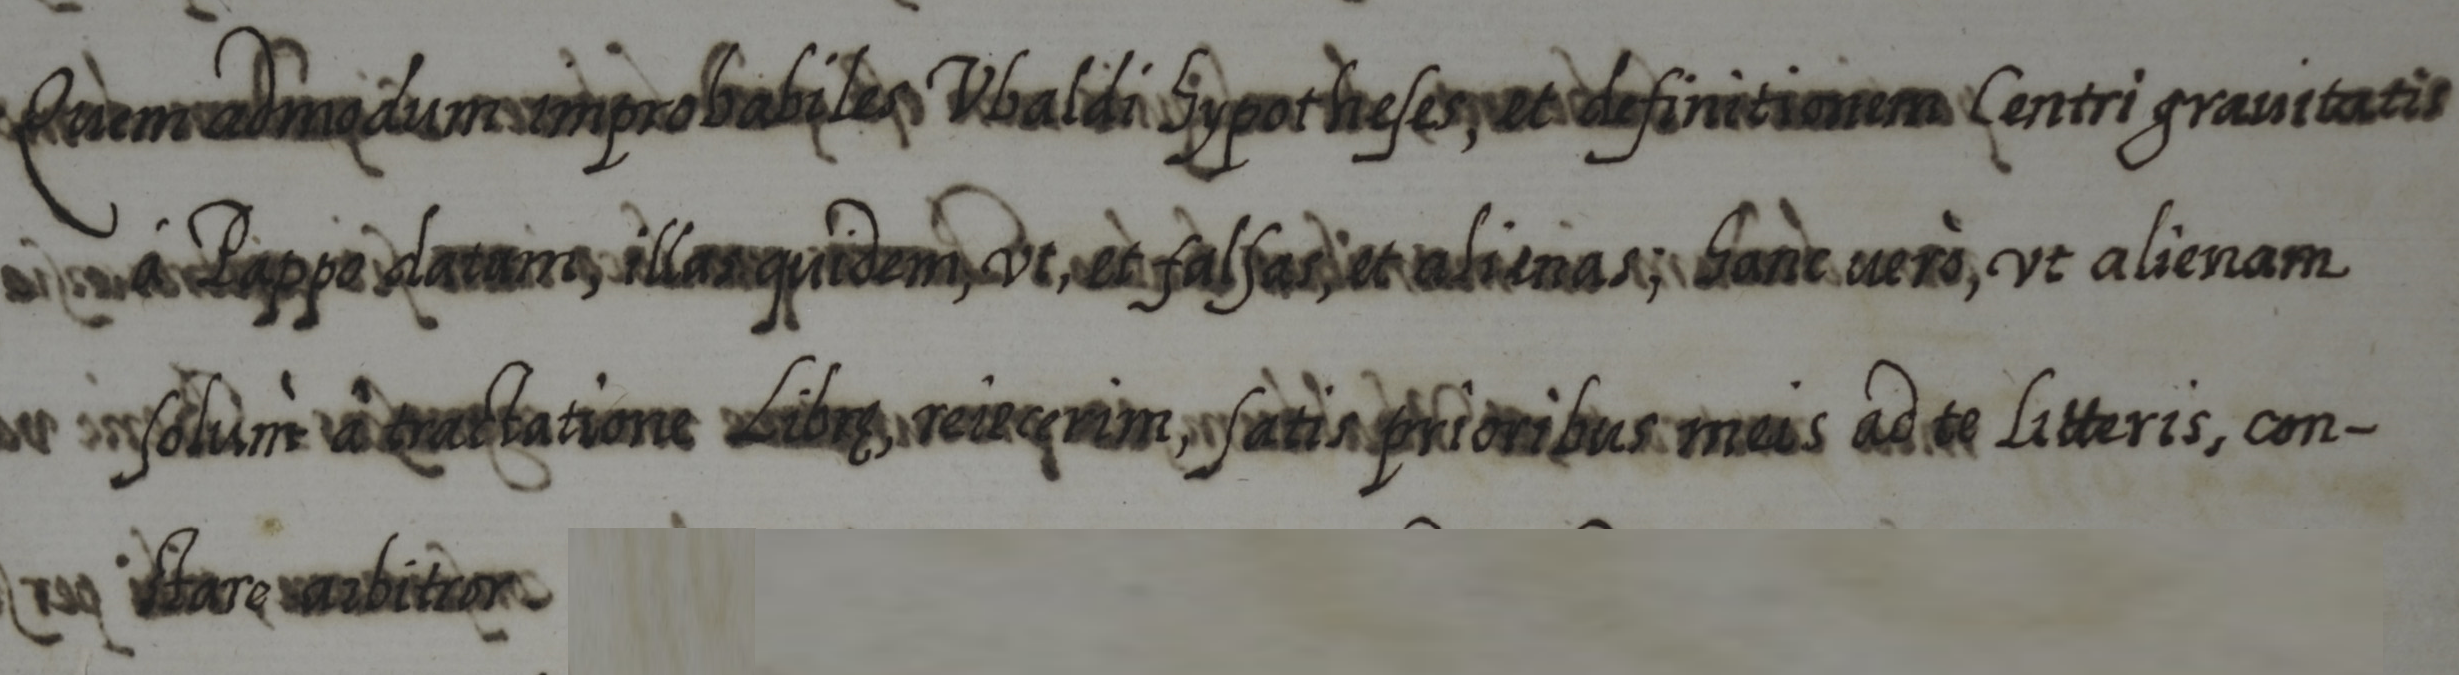 Quem admodum improbabiles Vbaldi hypotheses, et definitionem Centri grauitatis
á Pappo datam, illas quidem, vt, et falsas, et alienas; hanc uerò, vt alienam
solum̀ à tractatione Librę, reiecęrim, satis prioribus meis ad te Litteris, con-
starę arbitror